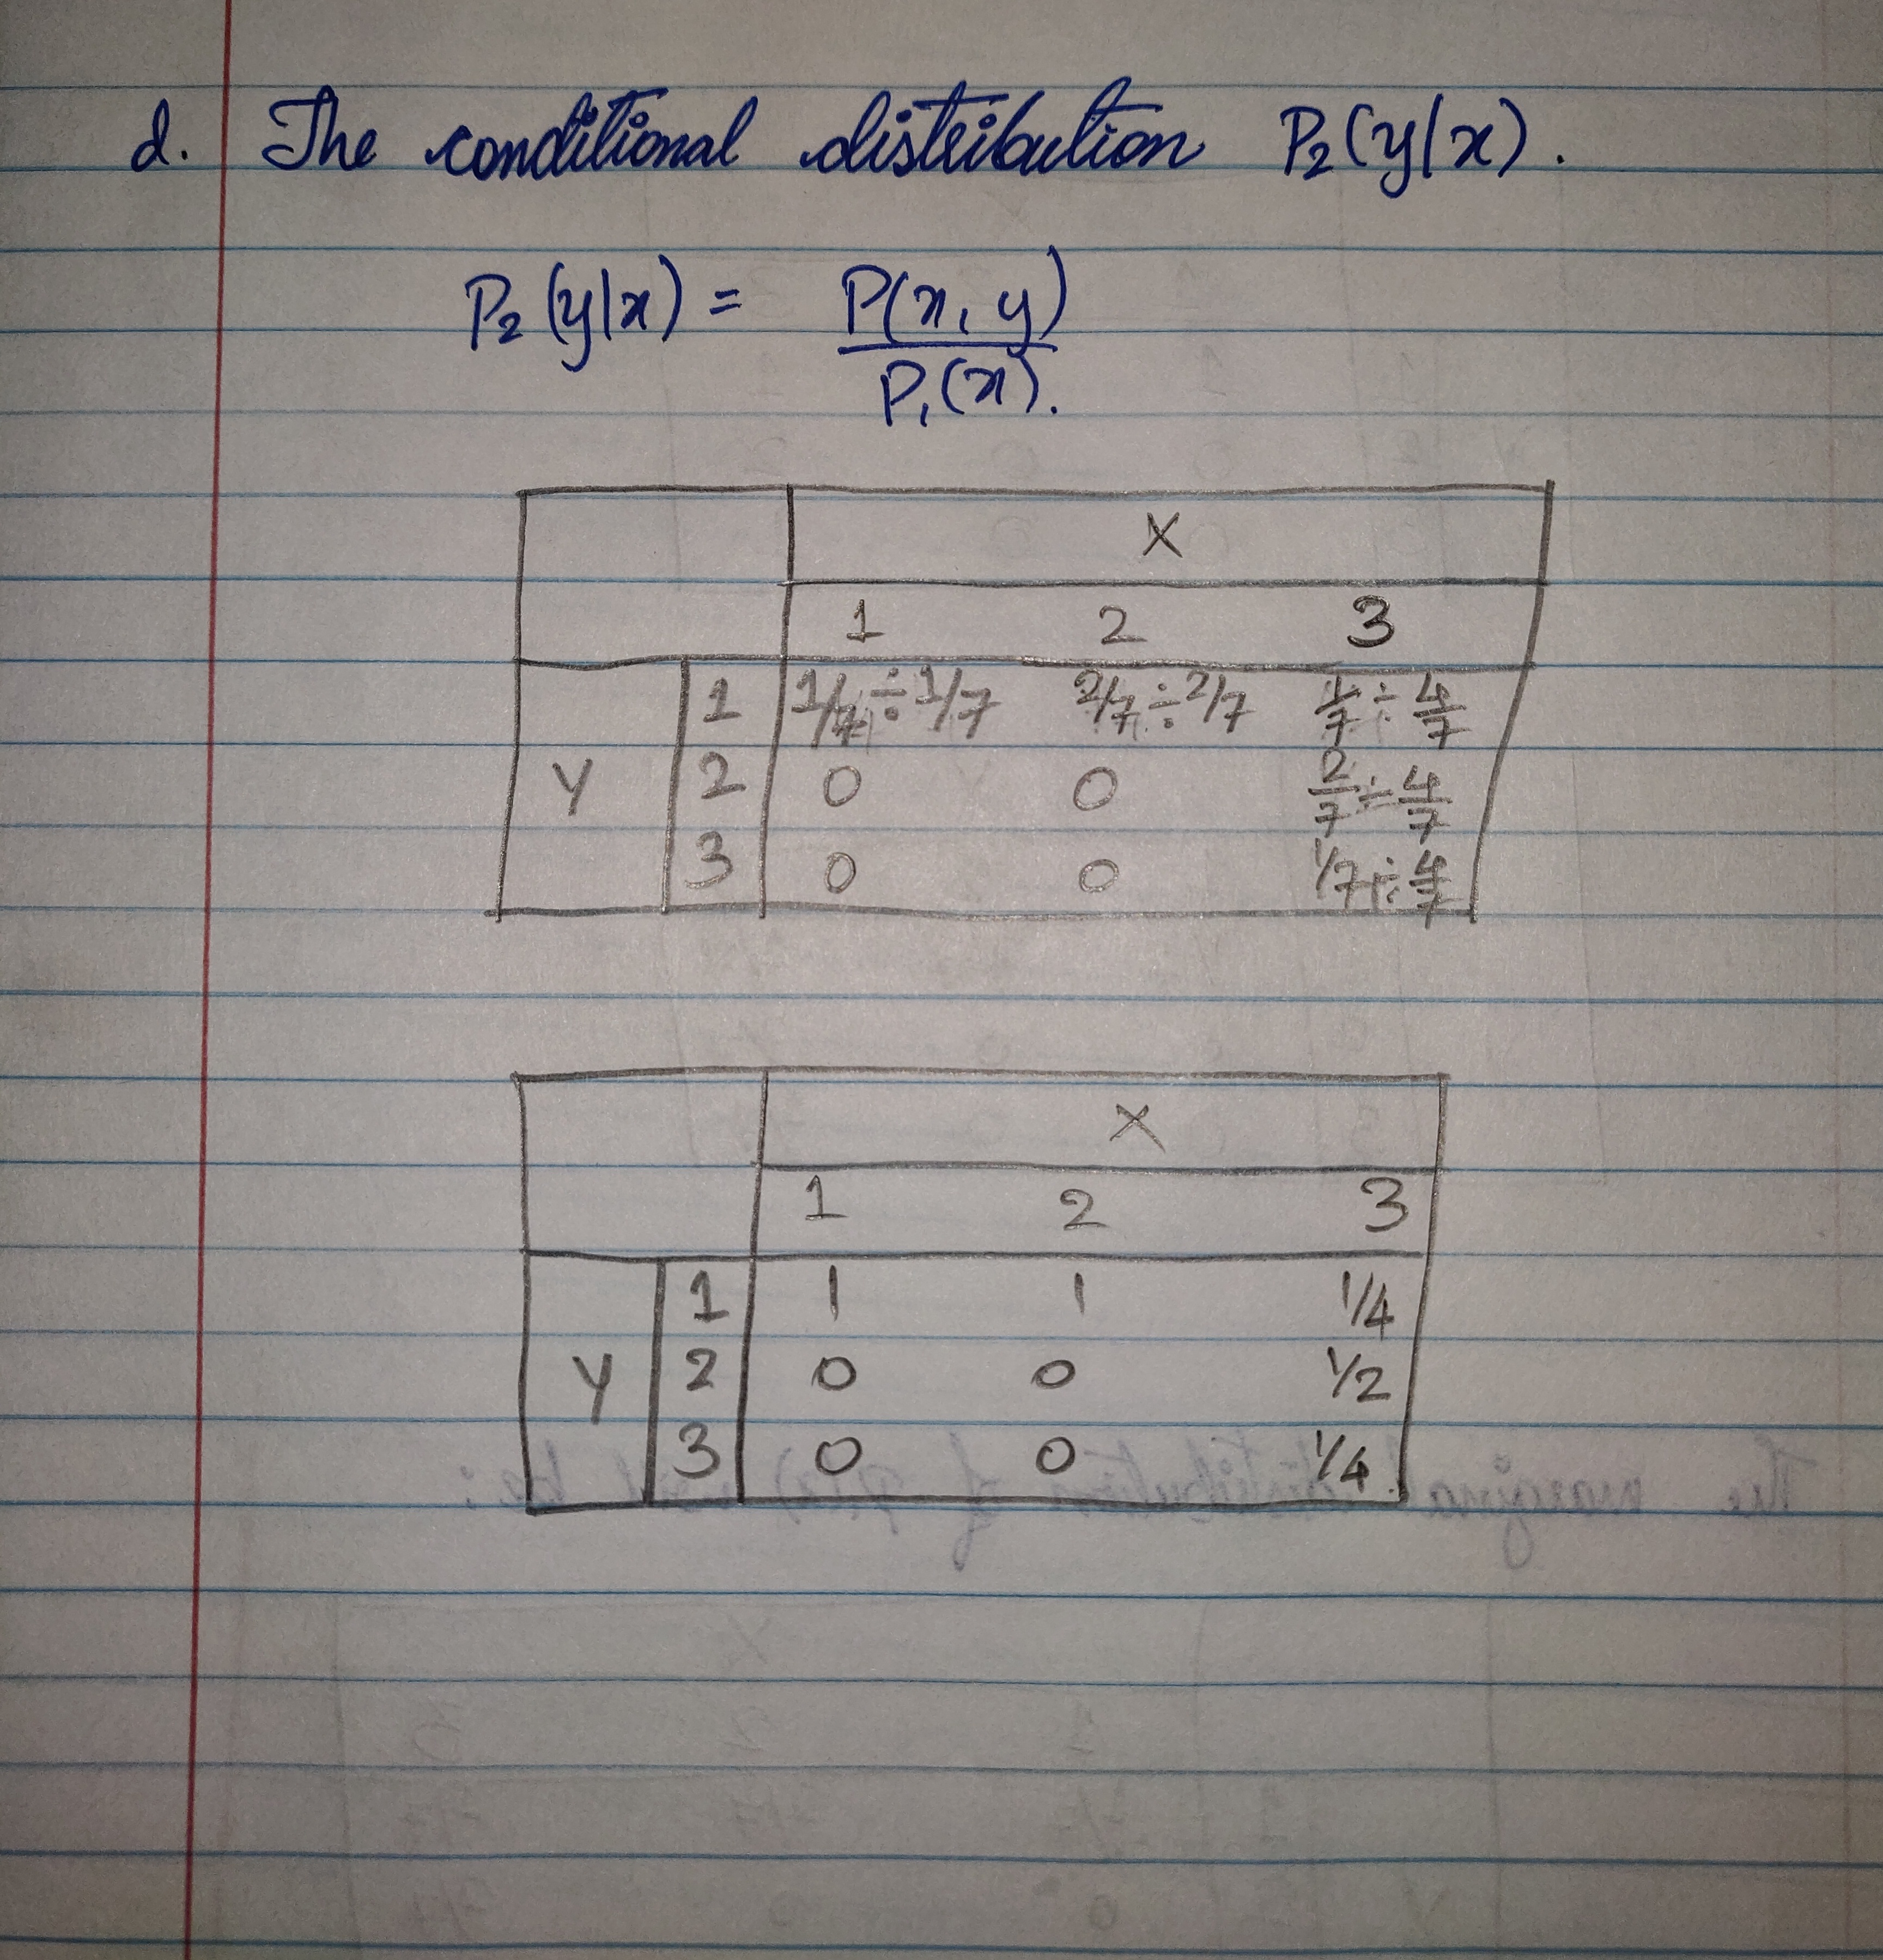 d. The conditional distribution P₂(y|x).
P₂(y|x) = P(x, y)
P₁(x).
X
1 2 3
1 1/7 ÷ 1/7 2/7 ÷ 2/7 1/7 ÷ 4/7
Y 2 0 0 2/7 ÷ 4/7
3 0 0 1/7 ÷ 4/7
X
1 2 3
1 1 1 1/4
Y 2 0 0 1/2
3 0 0 1/4